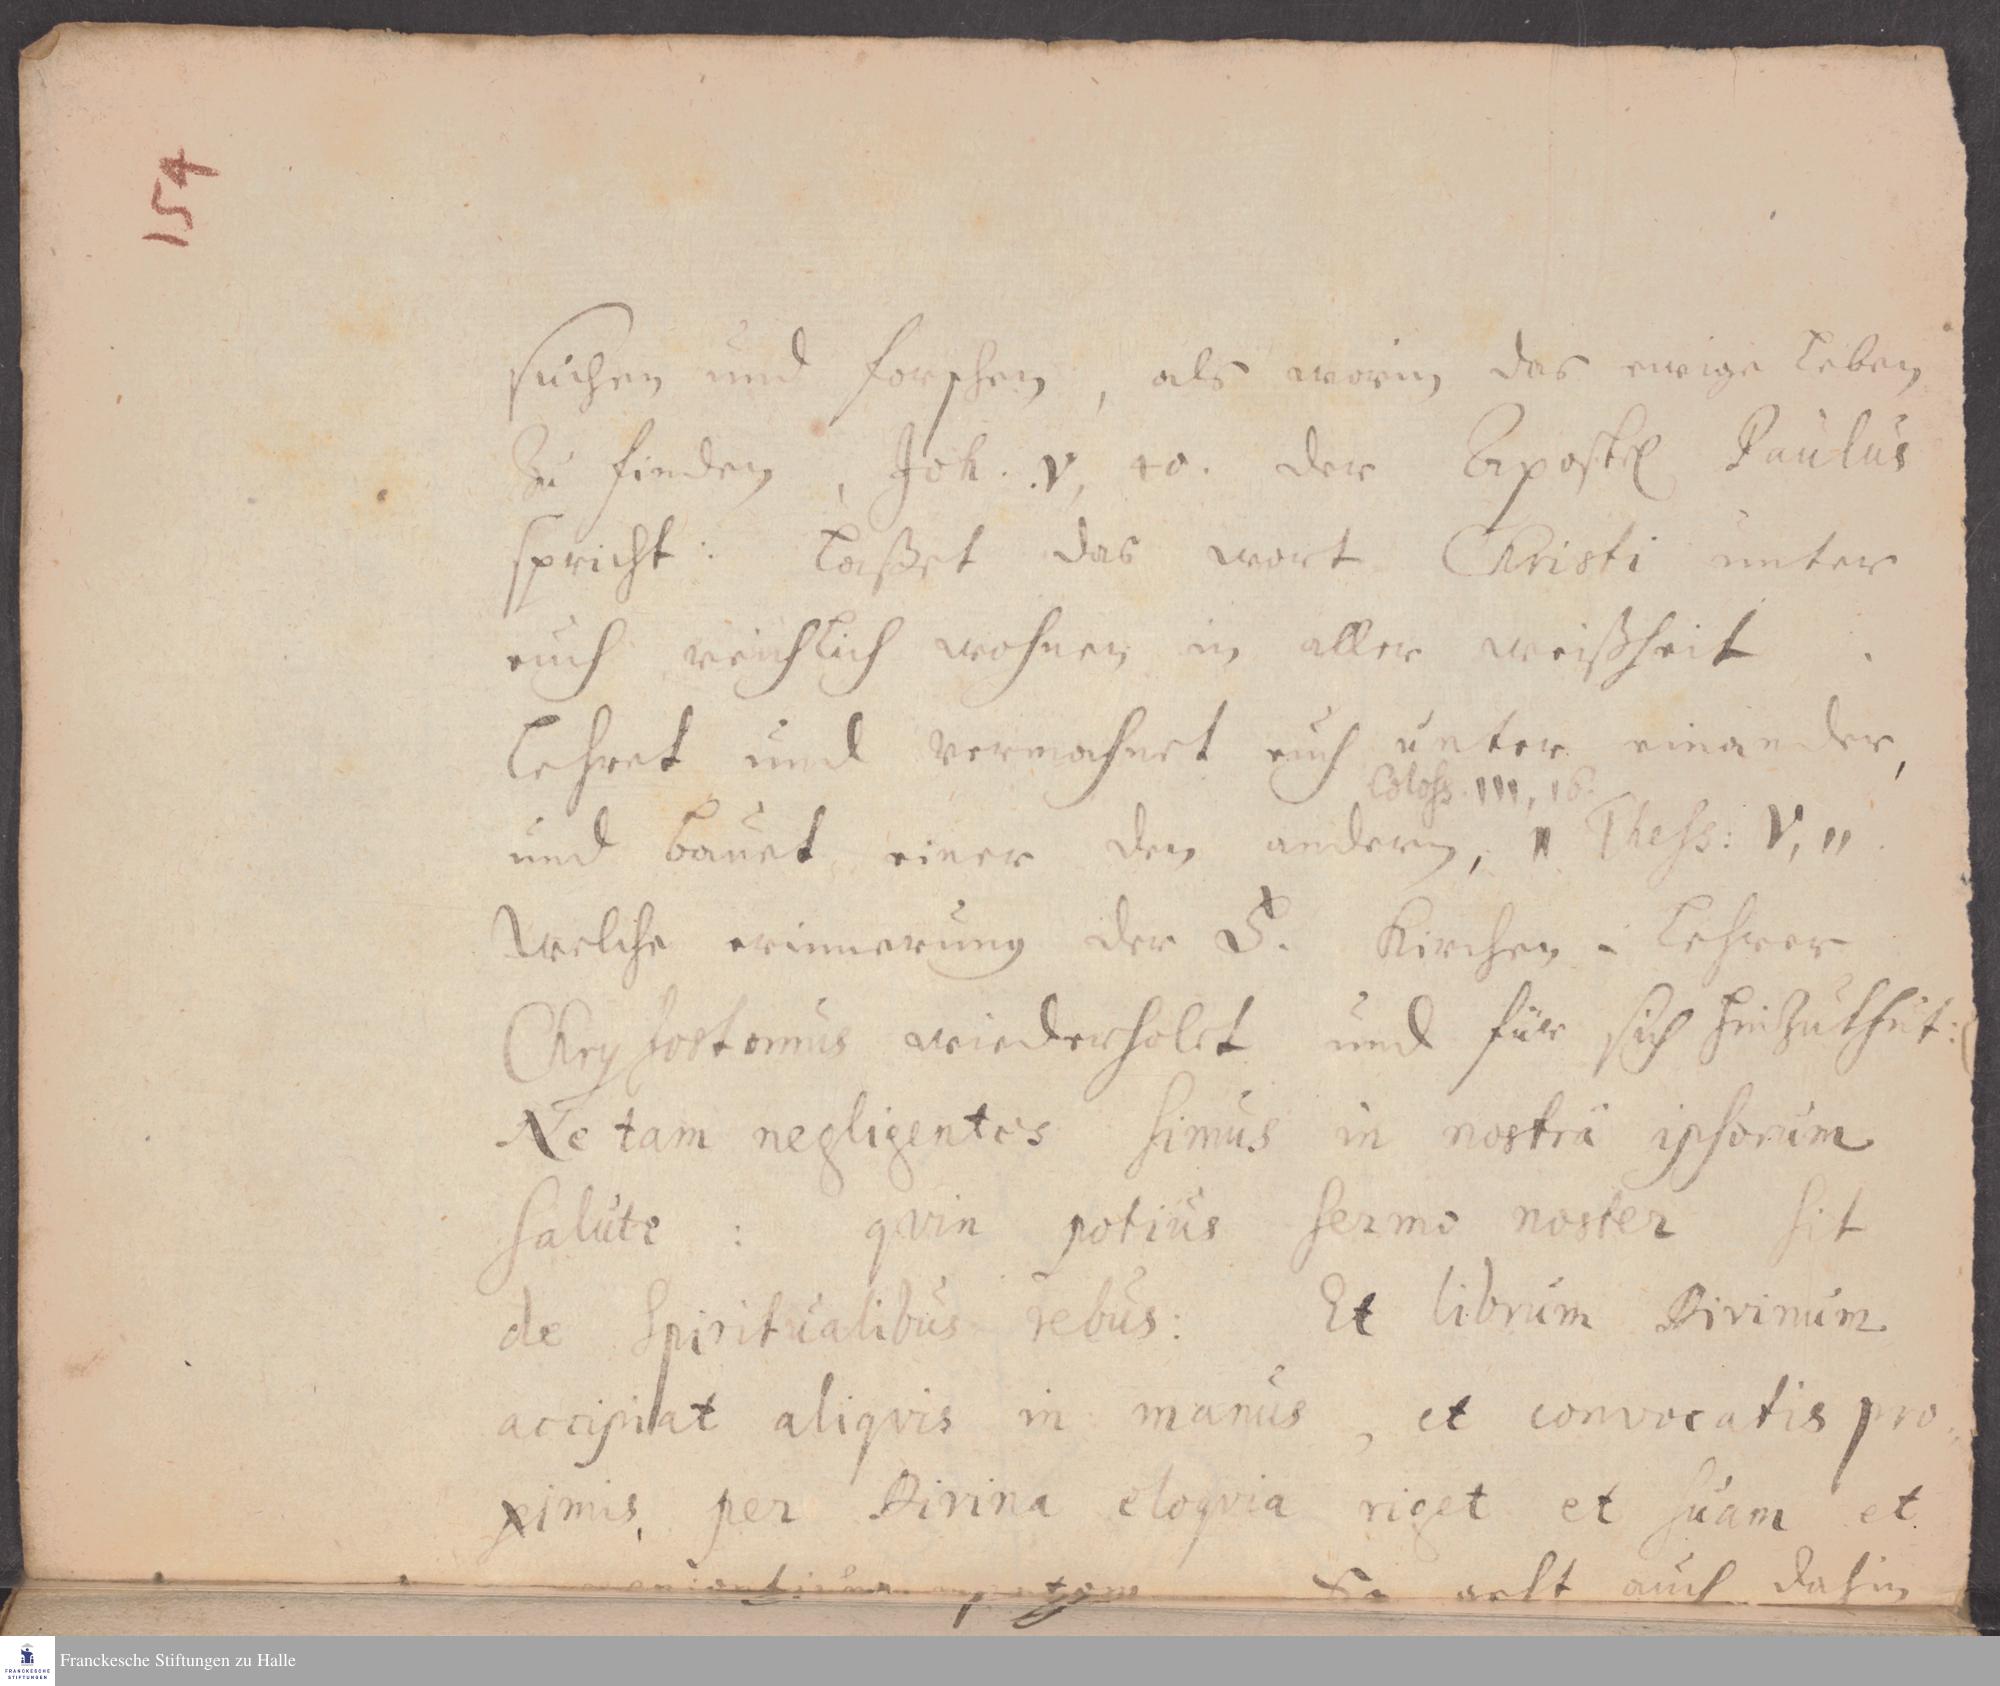 154
suchen und forschen, als worin das ewige Leben
zu finden, Joh. V, 40. der Apostel Paulus
spricht: Laßet das wort Christi unter
euch reichlich wohnen in aller weißheit.
Lehret und vermahnet euch unter einander,
Coloss. III, 16.
und bauet einer den andern, 1 Thess: V, 11.
Welche erinnerung der S. Kirchen-Lehrer
Chrysostomus wiederholet und für sich hinzuthut:
Ne tam negligentes simus in nostrâ ipsorum
salute: qvin potius sermo noster sit
de Spiritualibus rebus: Et librum Divinum
accipiat aliqvis in manus, et convocatis pro-
ximis, per Divina eloqvia riget et suam et
mentem So geht auch dahin
FRANCKESCHE STIFTUNGEN
Franckesche Stiftungen zu Halle